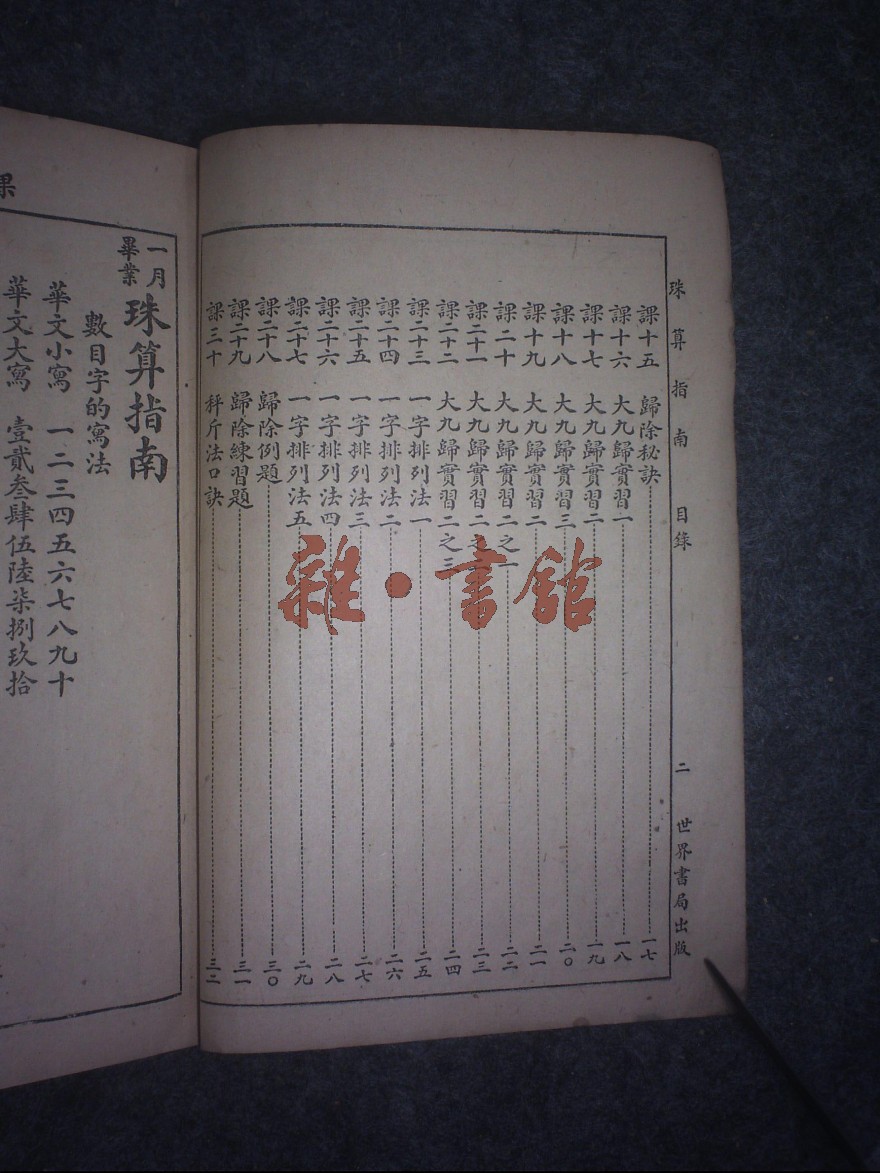 珠算指南 目錄 二 世界書局出版
課十五 歸除秘訣 一七
課十六 大九歸實習一 一八
課十七 大九歸實習二 一九
課十八 大九歸實習三 二〇
課十九 大九歸實習二 二一
課二十 大九歸實習二之一 二二
課二十一 大九歸實習二之 二三
課二十二 大九歸實習二之三 二四
課二十三 一字排列法一 二五
課二十四 一字排列法二 二六
課二十五 一字排列法三 二七
課二十六 一字排列法四 二八
課二十七 一字排列法五 二九
課二十八 歸除例題 三〇
課二十九 歸除練習題 三一
課三十 秤斤法口訣 三二
雜·書館
一月畢業 珠算指南
數目字的寫法
華文小寫 一二三四五六七八九十
華文大寫 壹貳叁肆伍陸柒捌玖拾